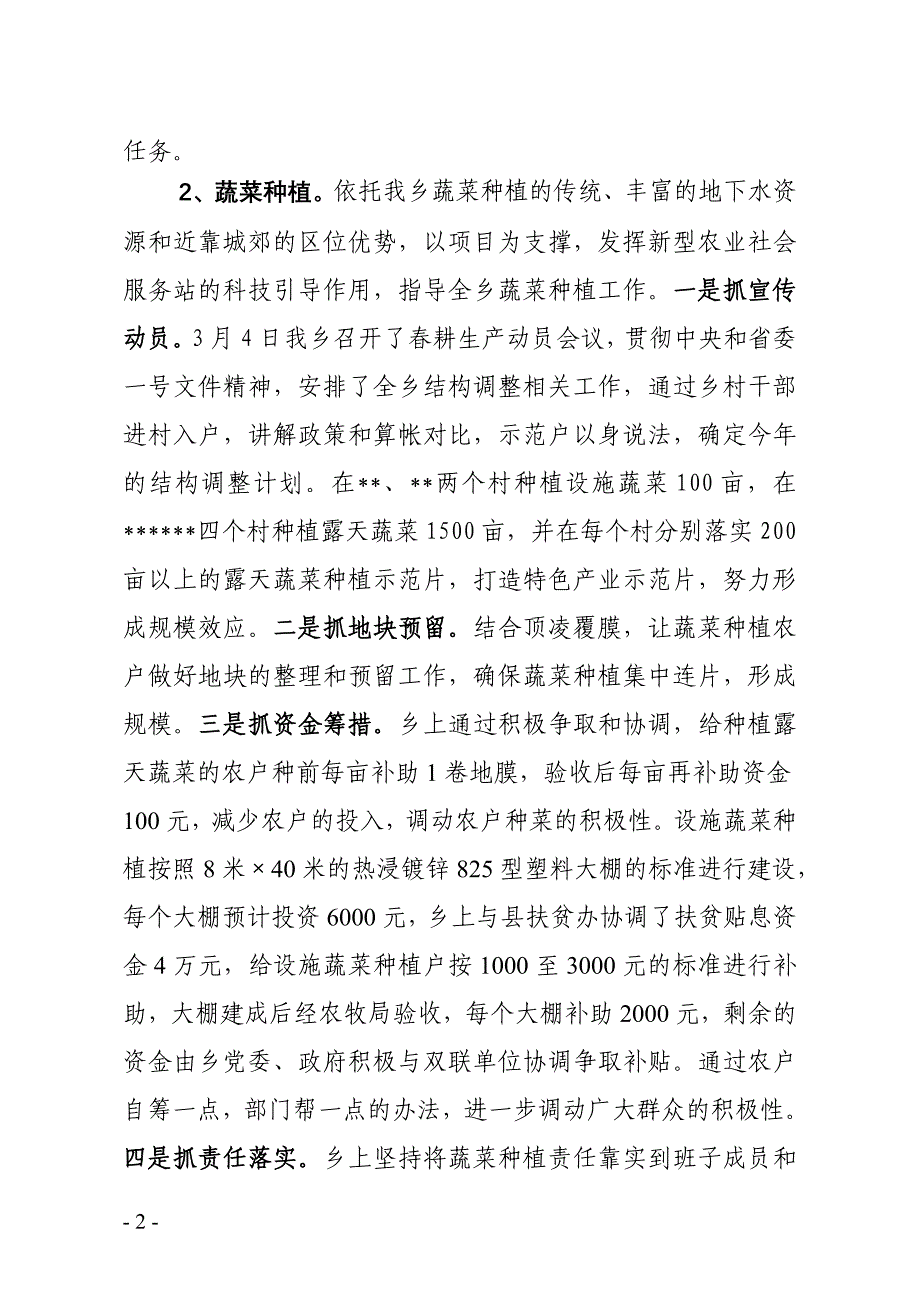 任务。
2、蔬菜种植。依托我乡蔬菜种植的传统、丰富的地下水资
源和近靠城郊的区位优势，以项目为支撑，发挥新型农业社会
服务站的科技引导作用，指导全乡蔬菜种植工作。一是抓宣传
动员。3 月 4 日我乡召开了春耕生产动员会议，贯彻中央和省委
一号文件精神，安排了全乡结构调整相关工作，通过乡村干部
进村入户，讲解政策和算帐对比，示范户以身说法，确定今年
的结构调整计划。在**、**两个村种植设施蔬菜 100 亩，在
******四个村种植露天蔬菜 1500 亩，并在每个村分别落实 200
亩以上的露天蔬菜种植示范片，打造特色产业示范片，努力形
成规模效应。二是抓地块预留。结合顶凌覆膜，让蔬菜种植农
户做好地块的整理和预留工作，确保蔬菜种植集中连片，形成
规模。三是抓资金筹措。乡上通过积极争取和协调，给种植露
天蔬菜的农户种前每亩补助 1 卷地膜，验收后每亩再补助资金
100 元，减少农户的投入，调动农户种菜的积极性。设施蔬菜种
植按照 8 米×40 米的热浸镀锌 825 型塑料大棚的标准进行建设，
每个大棚预计投资 6000 元，乡上与县扶贫办协调了扶贫贴息资
金 4 万元，给设施蔬菜种植户按 1000 至 3000 元的标准进行补
助，大棚建成后经农牧局验收，每个大棚补助 2000 元，剩余的
资金由乡党委、政府积极与双联单位协调争取补贴。通过农户
自筹一点，部门帮一点的办法，进一步调动广大群众的积极性。
四是抓责任落实。乡上坚持将蔬菜种植责任靠实到班子成员和
- 2 -